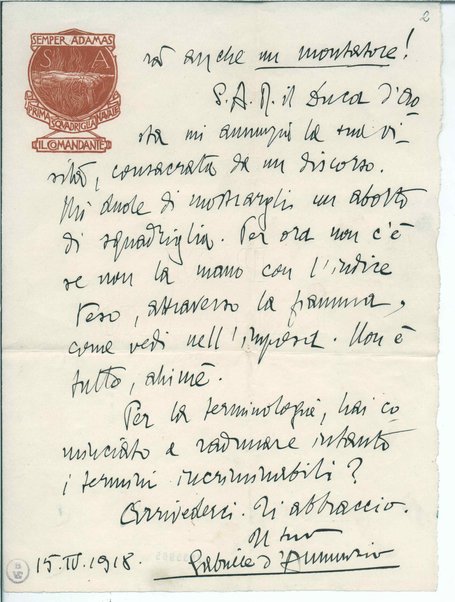 2
SEMPER ADAMAS
S A
PRIMA SQUADRIGLIA NAVALE
IL COMANDANTE
rà anche un montatore!
S. A. R. il Duca d'Ao
sta mi annunzia la sua vi
sita, consacrata da un discorso.
Mi duole di mostrargli un aborto
di squadriglia. Per ora non c'è
se non la mano con l'indice
teso, attraverso la fiamma,
come vedi nell'impresa. Non è
tutto, ahimè.
Per la terminologia, hai co
minciato a radunare intanto
i termini incriminabili?
Arrivederci. Ti abbraccio.
Il tuo
Gabriele d'Annunzio
15.IV.1918.